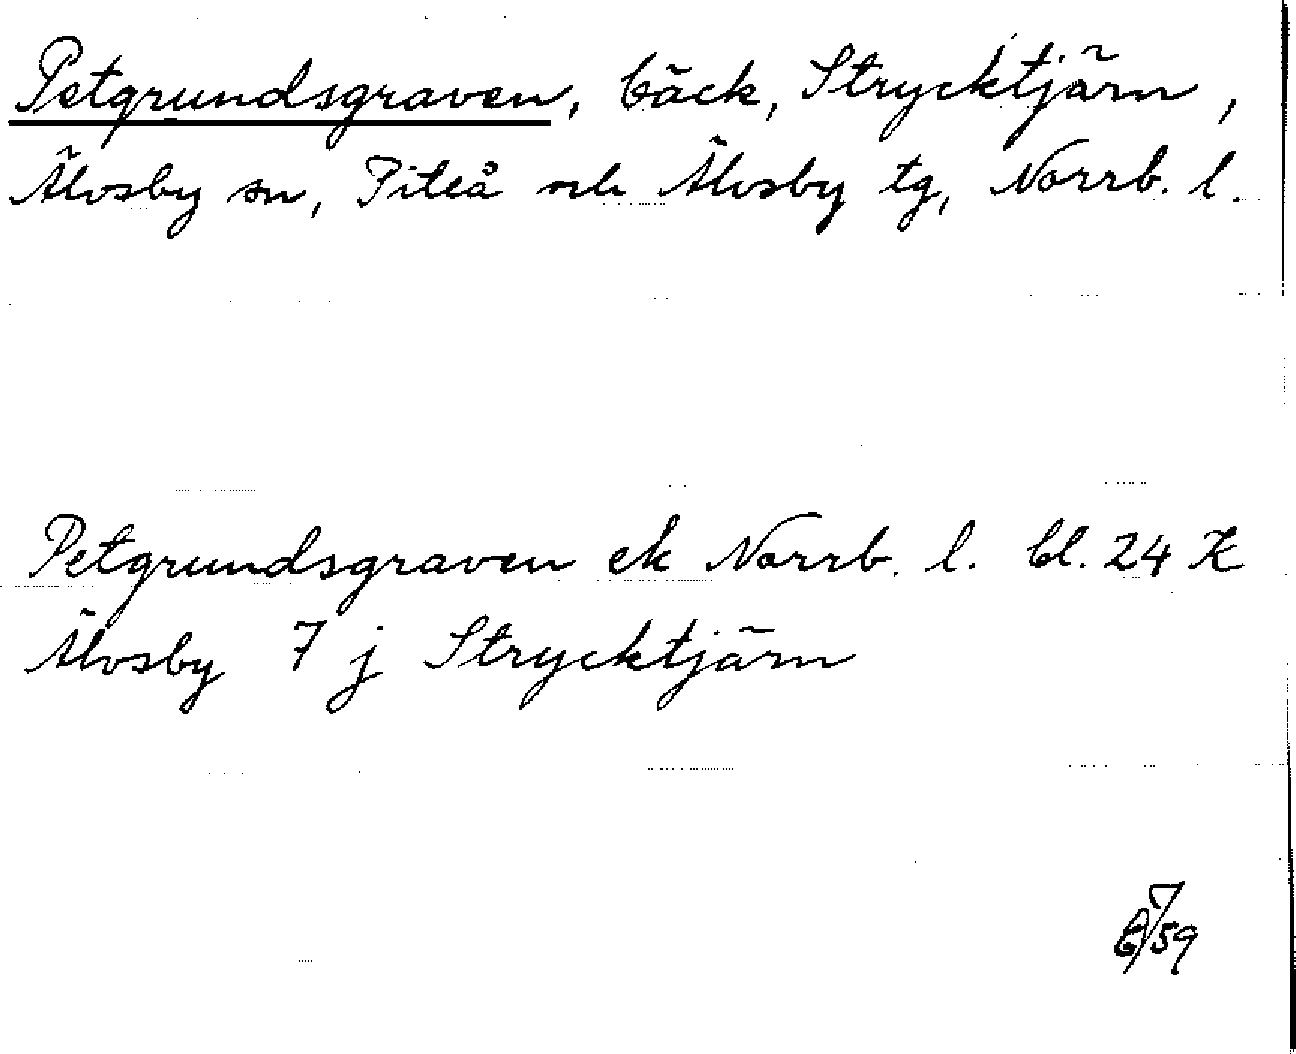 Petgrundsgraven, bäck, Strycktjärn,
Älvsby sn, Piteå och Älvsby tg, Norrb. l.
Petgrundsgraven ek Norrb. l. bl. 24 K
Älvsby 7 j Strycktjärn